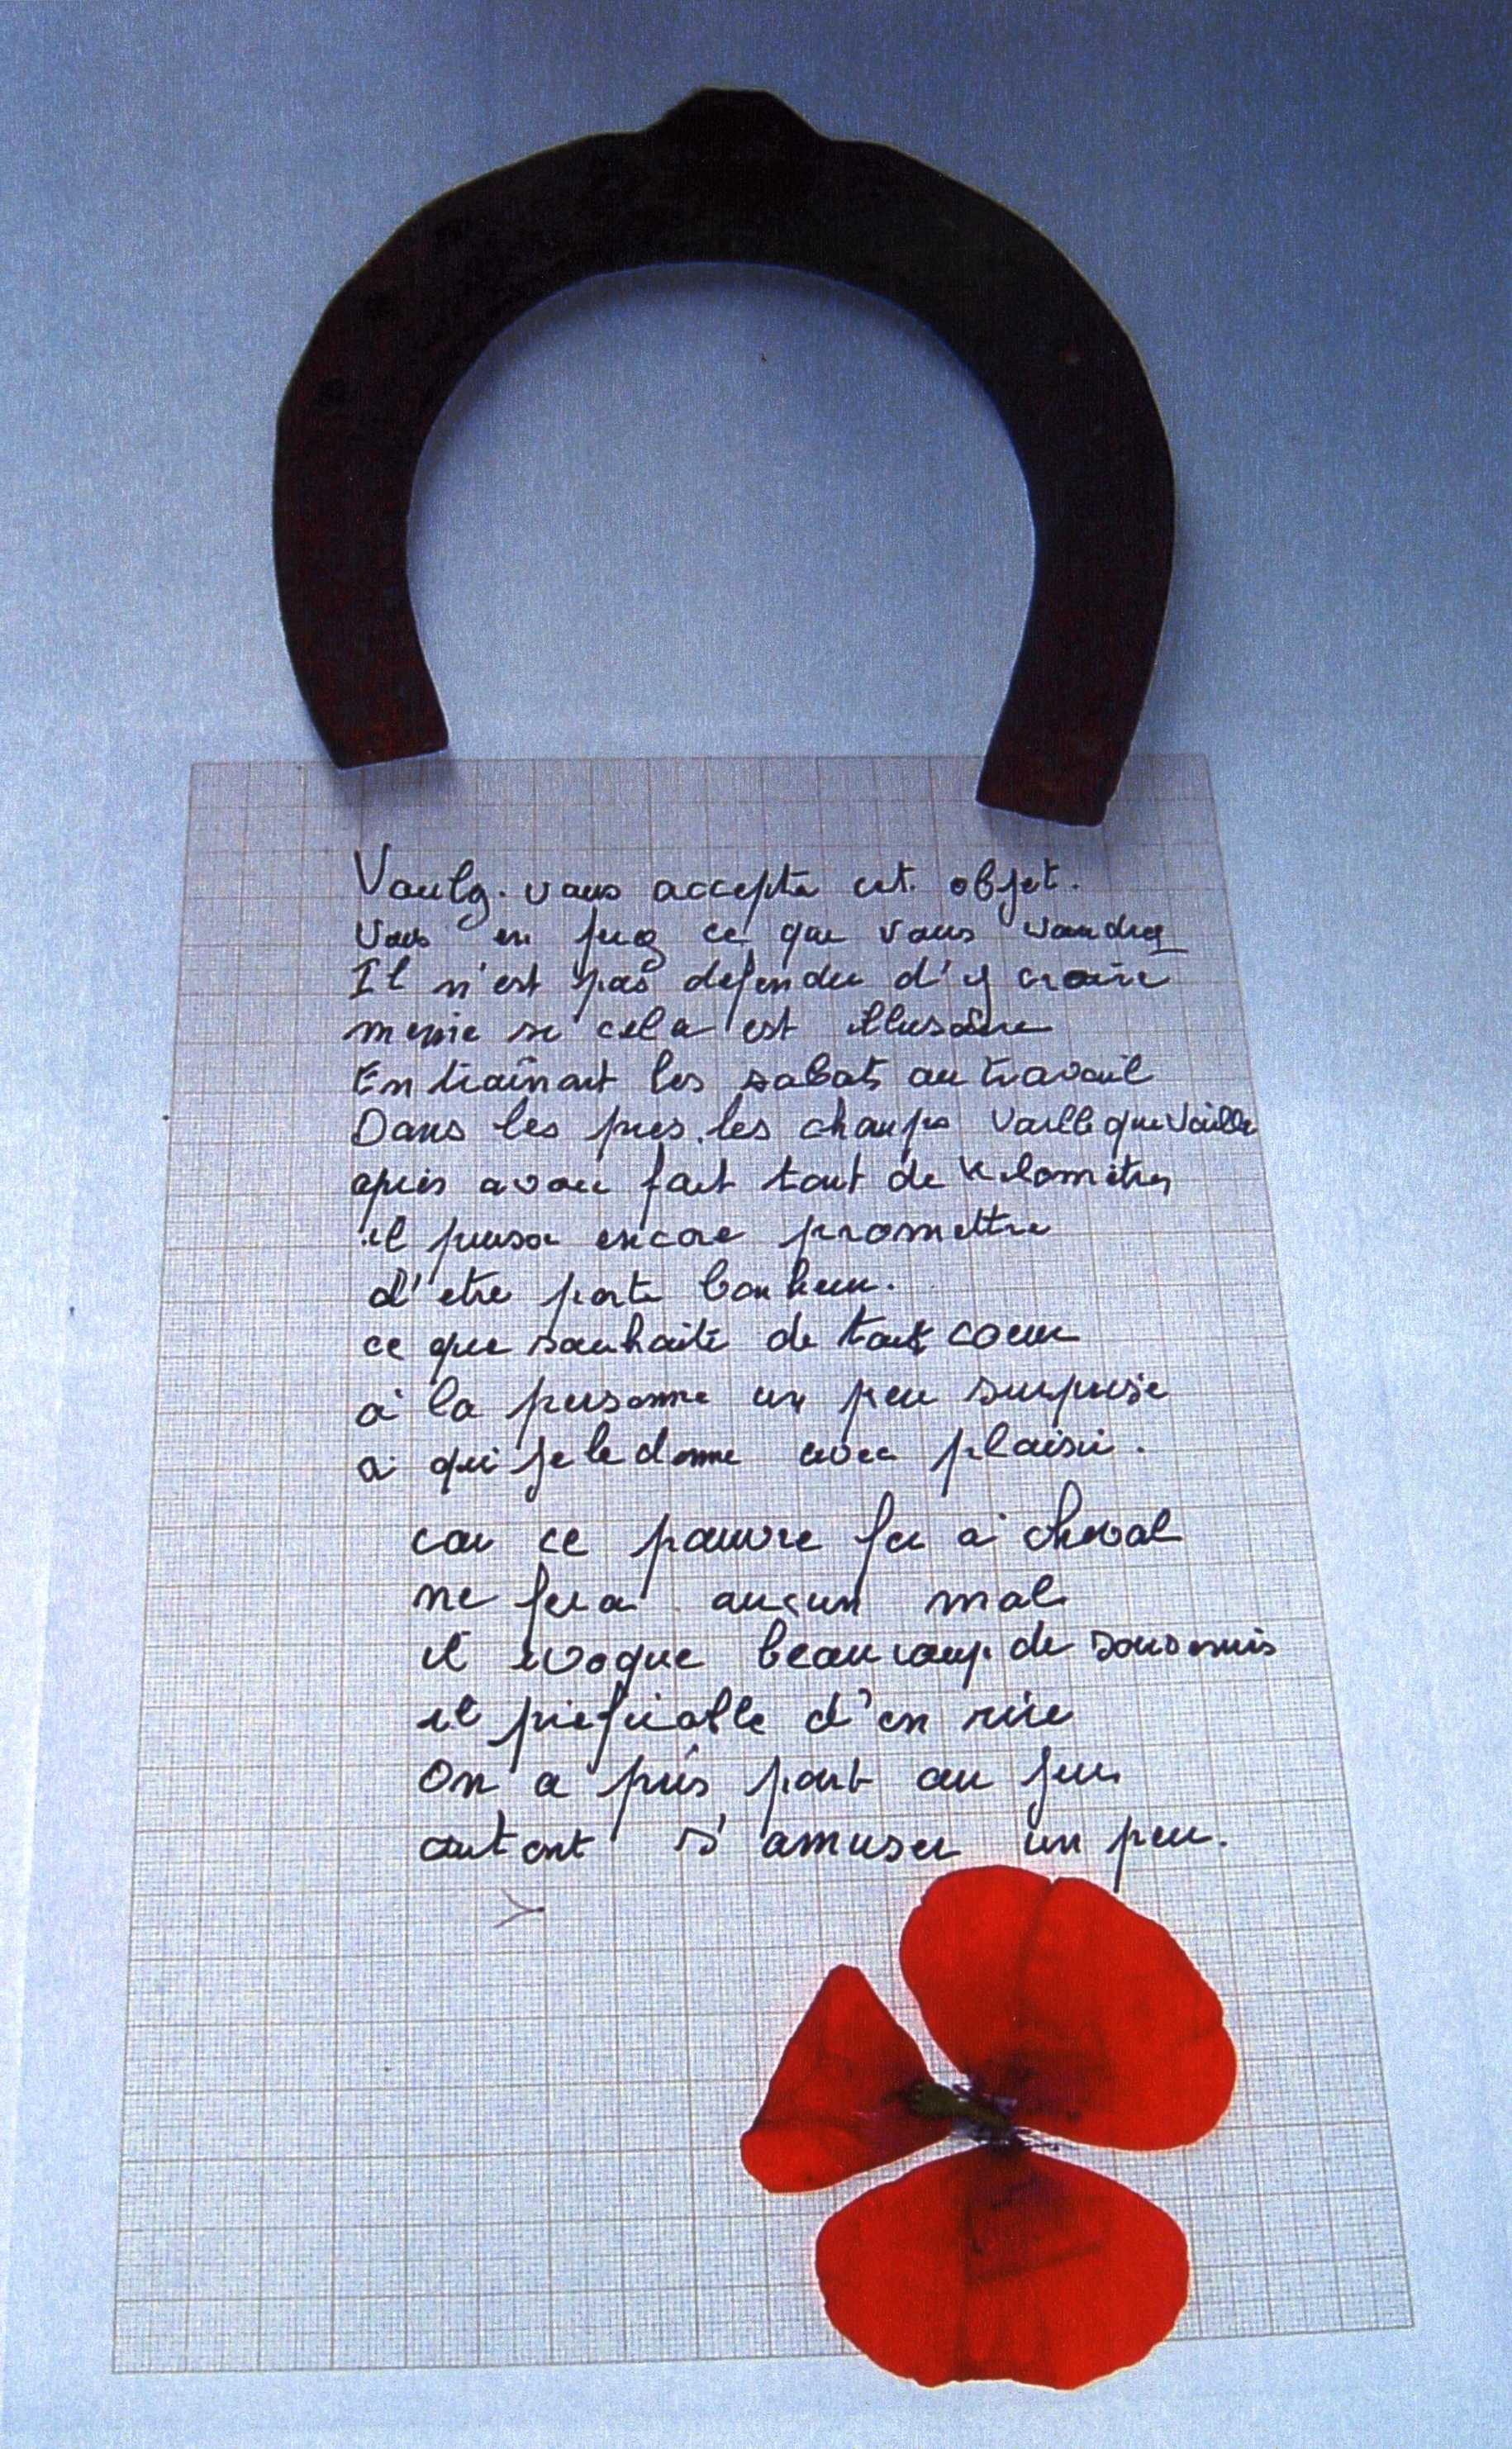 Voulez-vous accepter cet objet.
Vous en ferez ce que vous voudrez
Il n'est pas defendu d'y croire
meme si cela est illusoire
En trainant les sabots au travail
Dans les pres, les champs vaille que vaille
apres avoir fait tant de kilometres
il pense encore promettre
d'etre porte bonheur.
ce que souhaite de tout coeur
à la personne un peu surprise
à qui je le donne avec plaisir.
car ce pauvre fer à cheval
ne fera aucun mal
il evoque beaucoup de
il preferable d'en rire
On a pris part au jeu
autant s'amuser un peu.